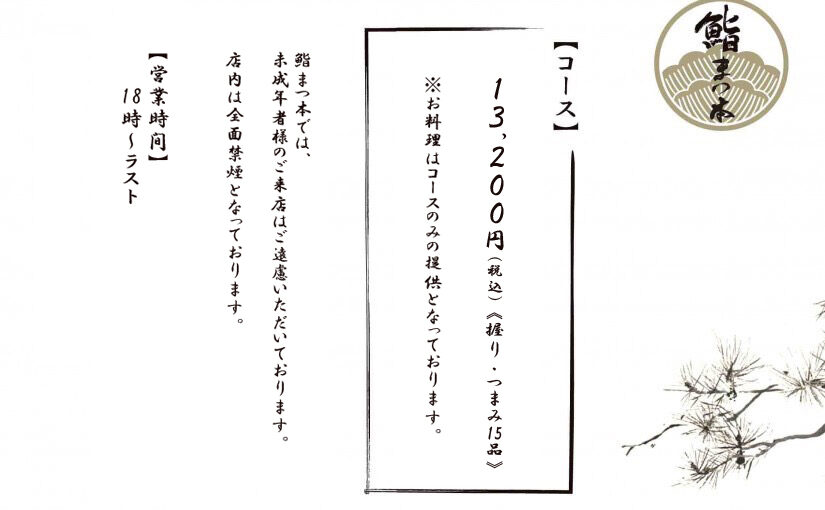 鮨まつ本
【コース】
13,200円(税込)《握り・つまみ15品》
※お料理はコースのみの提供となっております。
鮨まつ本では、
未成年者様のご来店はご遠慮いただいております。
店内は全面禁煙となっております。
【営業時间】
18時～ラスト